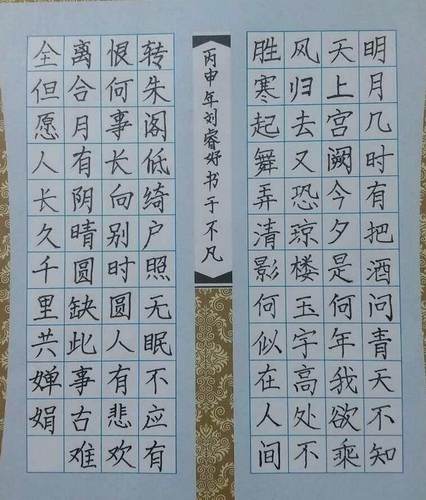 明月几时有把酒问青天不知
天上宫阙今夕是何年我欲乘
风归去又恐琼楼玉宇高处不
胜寒起舞弄清影何似在人间
转朱阁低绮户照无眠不应有
恨何事长向别时圆人有悲欢
离合月有阴晴圆缺此事古难
全但愿人长久千里共婵娟
丙申年刘睿好书于不凡